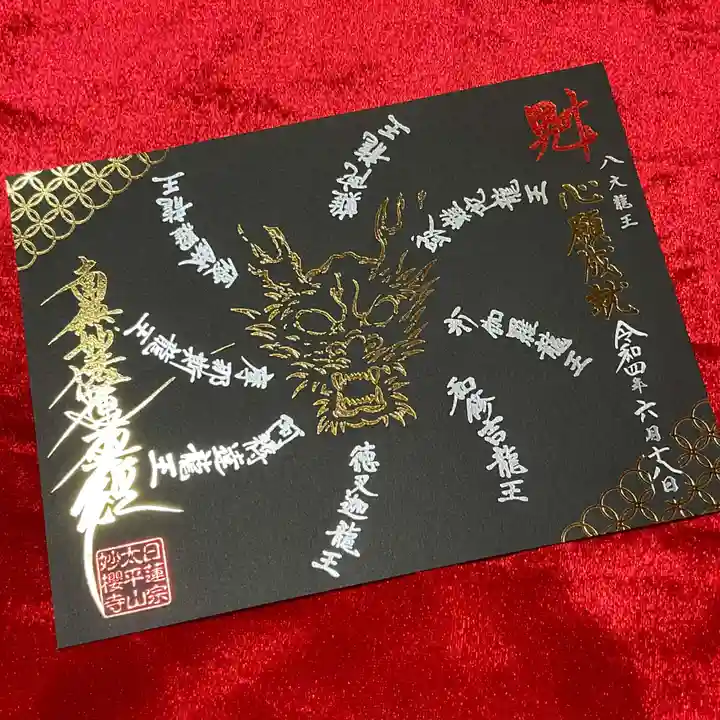 魁
八大龍王
心願成就
令和四年六月十八日
難陀龍王
跋難陀龍王
娑伽羅龍王
和修吉龍王
徳叉迦龍王
阿耨達龍王
摩那斯龍王
優鉢羅龍王
南無妙法蓮華経
日蓮宗
太平山
妙櫻寺